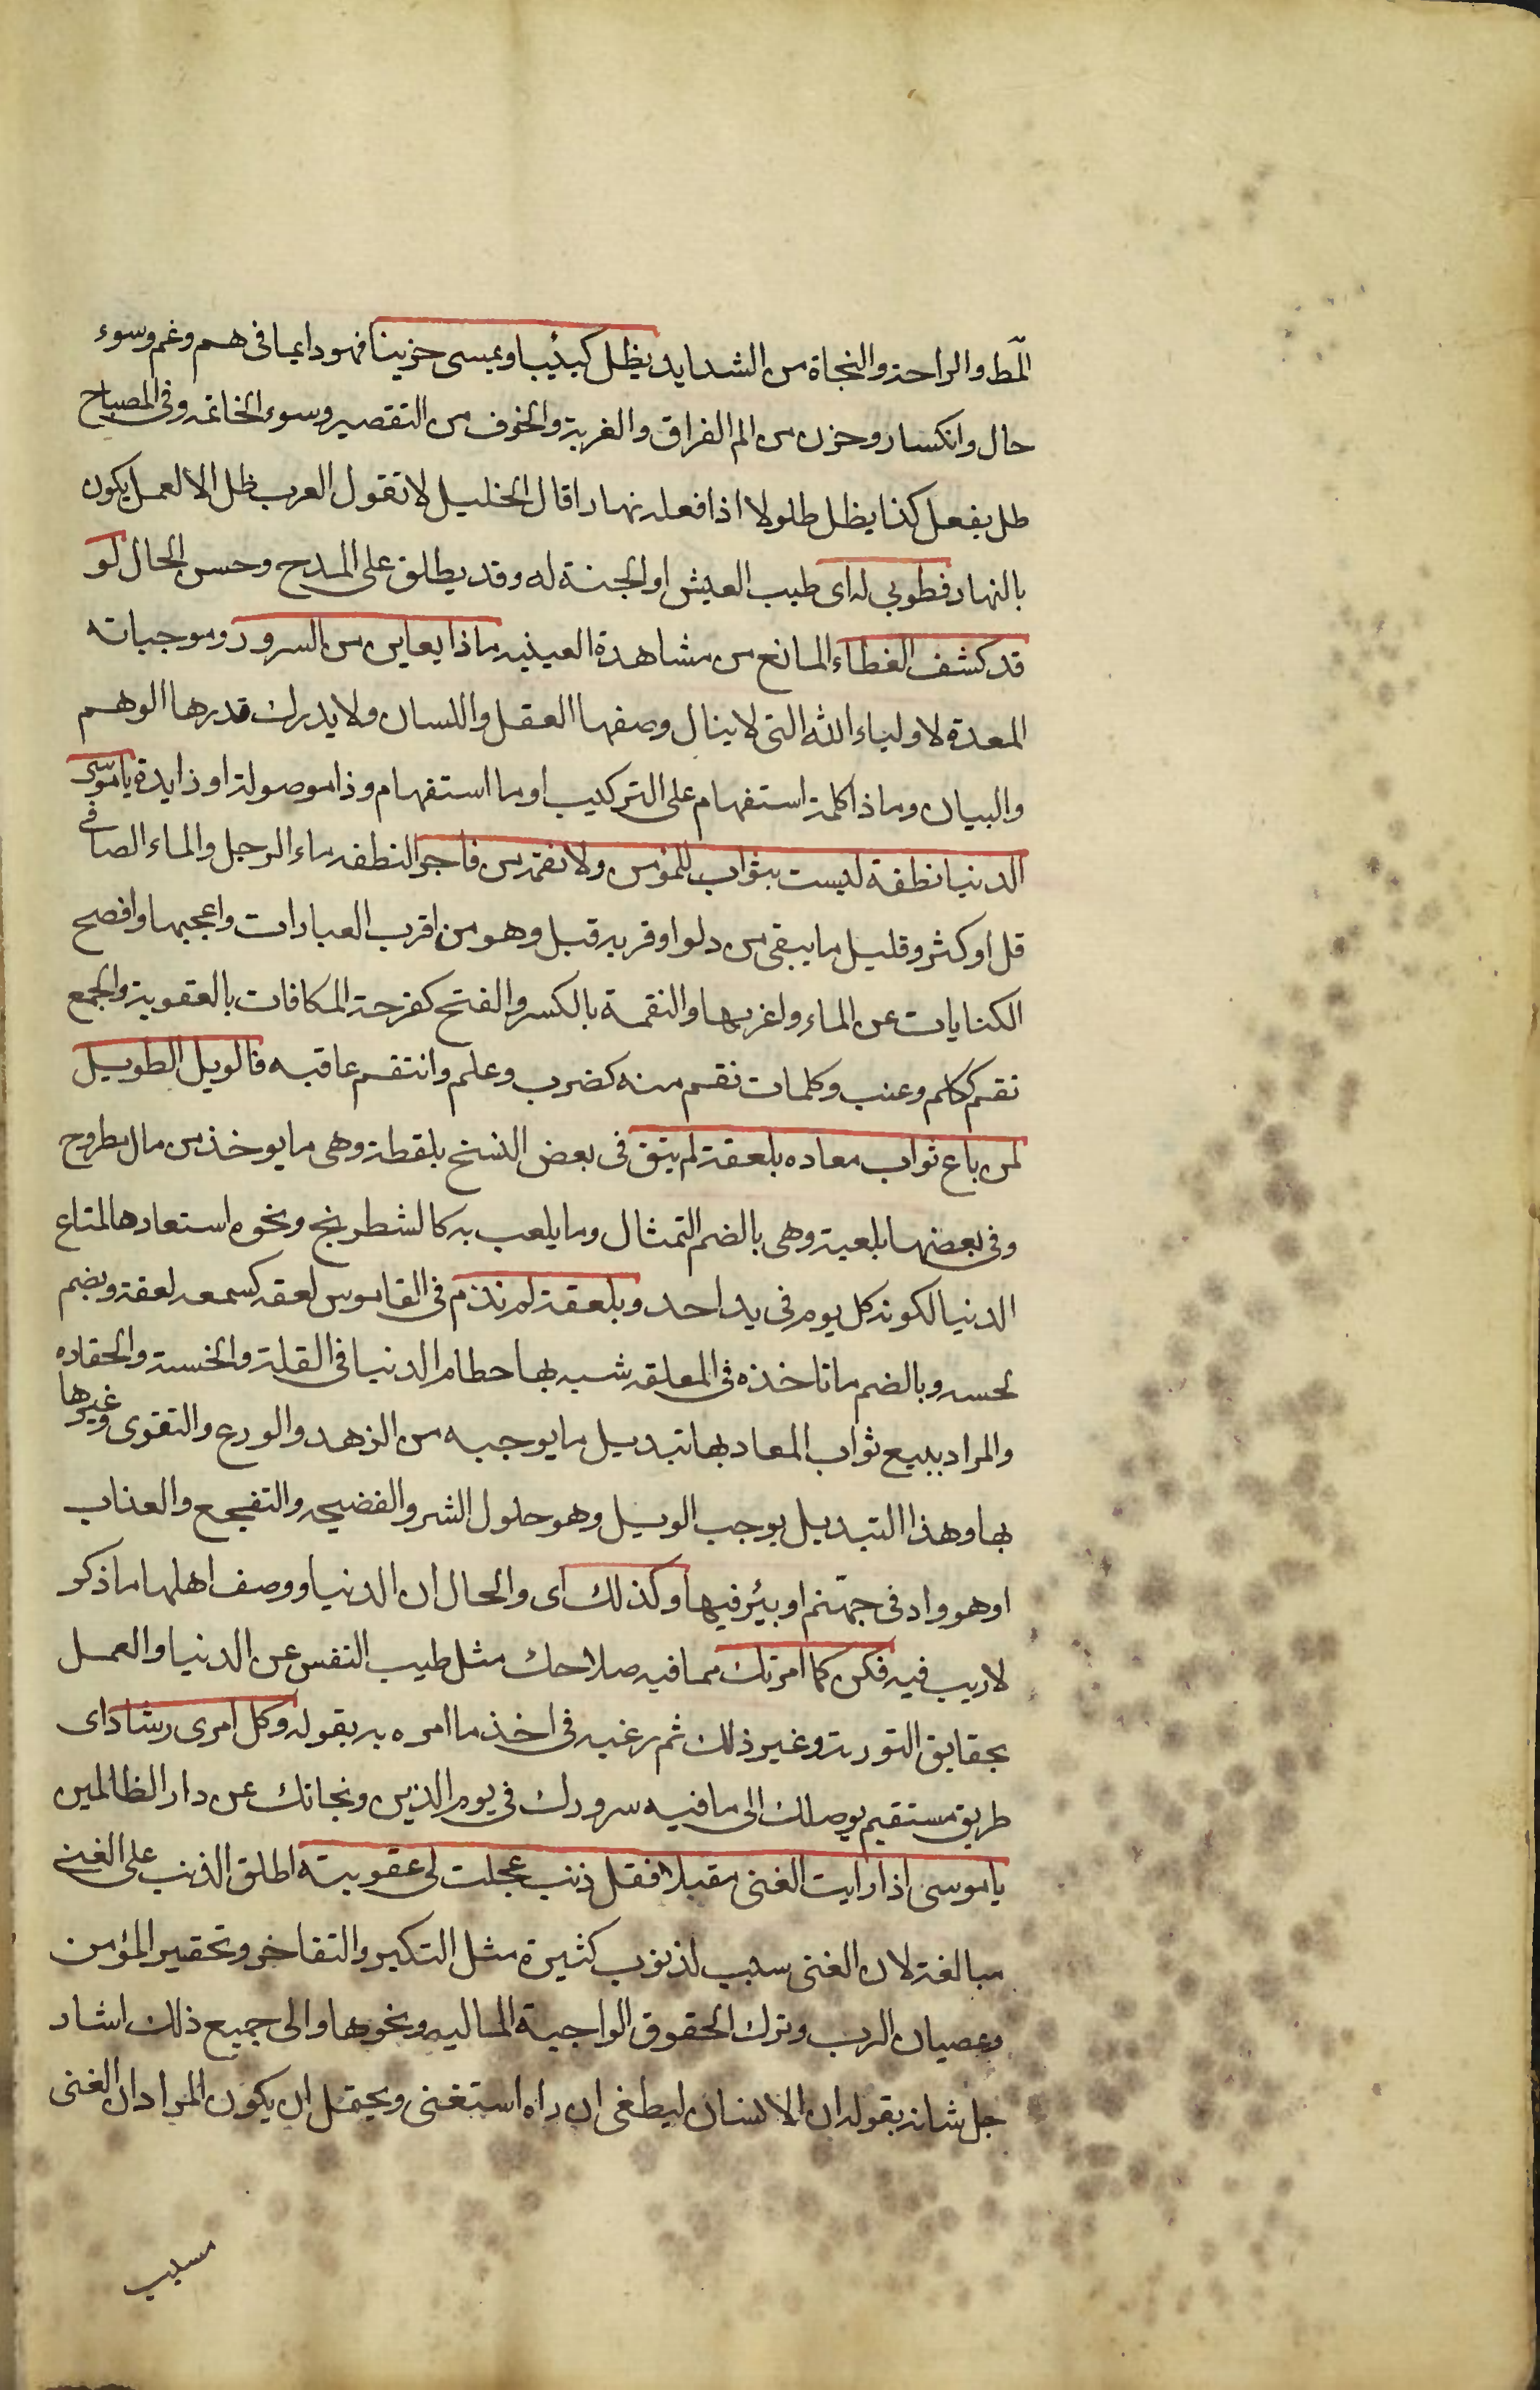 المّط والراحة والنجاة من الشدايد يظل كئيبا ويمسى حزينا فهو دايما فى هم وغم وسوء
حال وانكسار وحزن من الم الفراق والغربة والخوف من التقصير وسوء الخاتمه وفى المصباح
ظل يفعل كذا يظل ظلولا اذا فعله نهارا قال الخليل لا تقول العرب ظل الا لعمل يكون
بالنهار فطوبى له اى طيب العيش او الجنة له وقد يطلق على المدح وحسن الحال لو
قد كشف الغطاء المانع من مشاهدة العينيه ماذا يعاين من السرور وموجباته
المعدة لاولياء الله التى لا ينال وصفها العقل واللسان ولا يدرك قدرها الوهم
والبيان وماذا كلمة استفهام على التركيب او ما استفهام وذا موصولة او زايدة يا موسى
الدنيا نطفة ليست بثواب للمؤمن ولا نقمة من فاجر النطفه ماء الرجل والماء الصافى
قل او كثر وقليل ما يبقى من دلو او قربه قبل وهو من اقرب العبارات واعجبها وافصح
الكنايات عن الماء واغربها والنقمة بالكسر والفتح كفرحة المكافات بالعقوبة والجمع
نقم ككلم وعنب وكلمات نقم منه كضرب وعلم وانتقم عاقبه فالويل الطويل
لمن باع ثواب معاده بلعقة لم يبق فى بعض النسخ بلقطة وهى ما يوخذ من مال مطروح
وفى بعضها بلعبة وهى بالضم التمثال وما يلعب به كالشطرنج ونحوه استعارها لمتاع
الدنيا لكونه كل يوم فى يد احد وبلعقة لم تدم فى القاموس لعقه كسمعه لعقة ويضم
لحسه وبالضم ما تاخذه فى الملعقه شبه بها حطام الدنيا فى القلة والخسة والحقاره
والمراد ببيع ثواب المعاد بها تبديل ما يوجبه من الزهد والورع والتقوى وغيرها
بها وهذا التبديل يوجب الويل وهو حلول الشر والفضيحه والتفجع والعذاب
او هو واد فى جهنم او بئر فيها وكذلك اى والحال ان الدنيا ووصف اهلها ما ذكر
لا ريب فيه فكن كما امرتك مما فيه صلاحك مثل طيب النفس عن الدنيا والعمل
بحقايق التورية وغير ذلك ثم رغبه فى اخذ ما امره به بقوله وكل امرى رشاد اى
طريق مستقيم يوصلك الى ما فيه سرورك فى يوم الدين ونجاتك عن دار الظالمين
يا موسى اذا رايت الغنى مقبلا فقل ذنب عجلت لى عقوبته اطلق الذنب على الغنى
مبالغة لان الغنى سبب لذنوب كثيرة مثل التكبر والتفاخر وتحقير المؤمن
وعصيان الرب وترك الحقوق الواجبة الماليه ونحوها والى جميع ذلك اشار
جل شانه بقوله ان الانسان ليطغى ان راه استغنى ويحتمل ان يكون المراد ان الغنى
مسبب